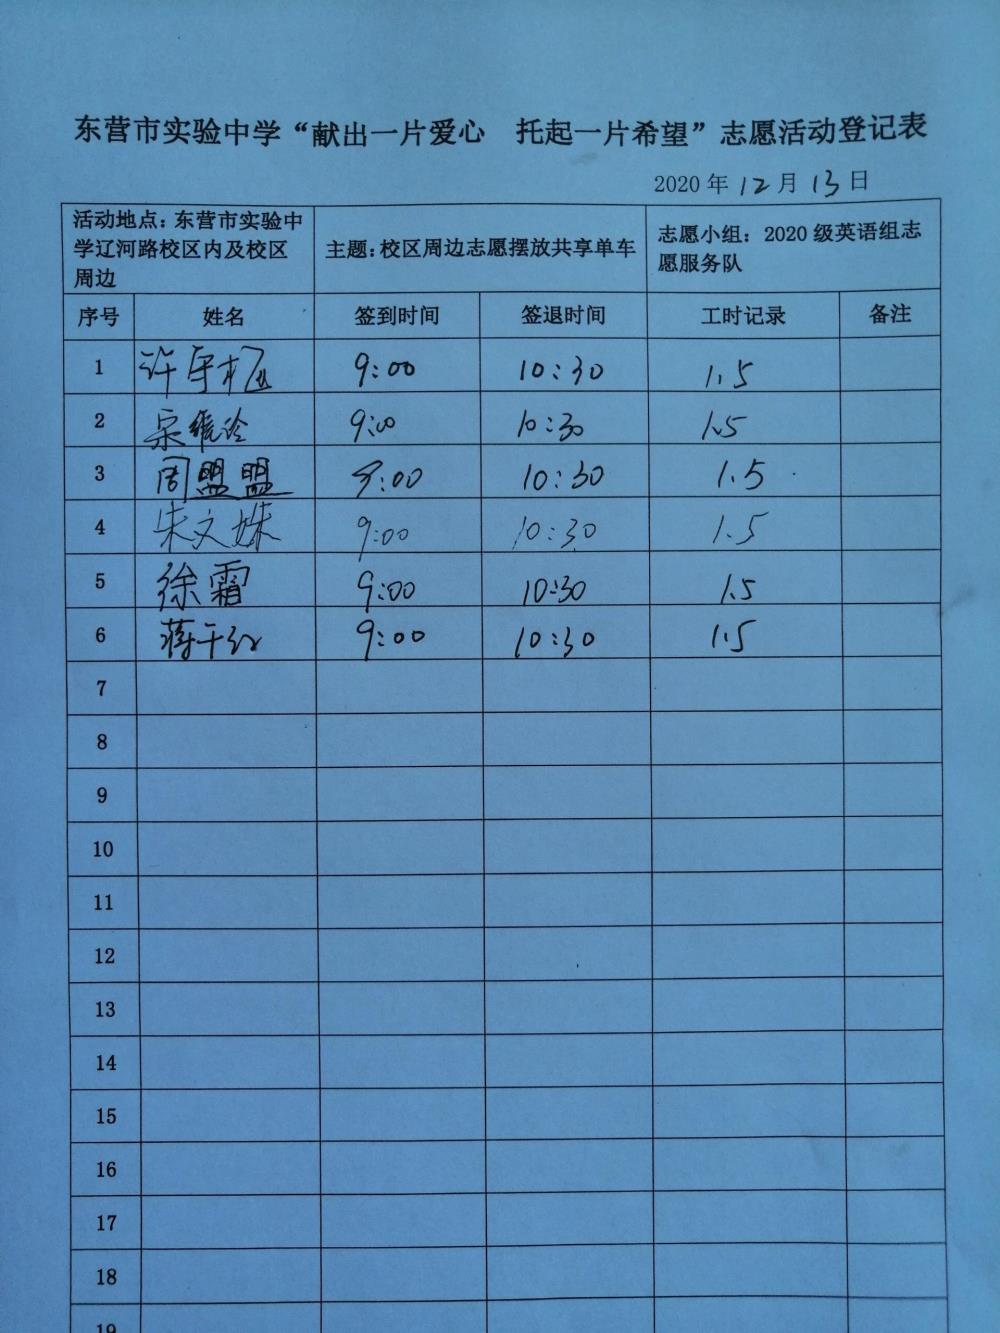 东营市实验中学“献出一片爱心 托起一片希望”志愿活动登记表
2020 年 12 月 13 日
活动地点：东营市实验中学辽河路校区内及校区周边 主题：校区周边志愿摆放共享单车 志愿小组：2020 级英语组志愿服务队
序号 姓名 签到时间 签退时间 工时记录 备注
1 许 9:00 10:30 1.5
2 宋维玲 9:00 10:30 1.5
3 周盟盟 9:00 10:30 1.5
4 朱文姝 9:00 10:30 1.5
5 徐霜 9:00 10:30 1.5
6 蒋于红 9:00 10:30 1.5
7
8
9
10
11
12
13
14
15
16
17
18
19